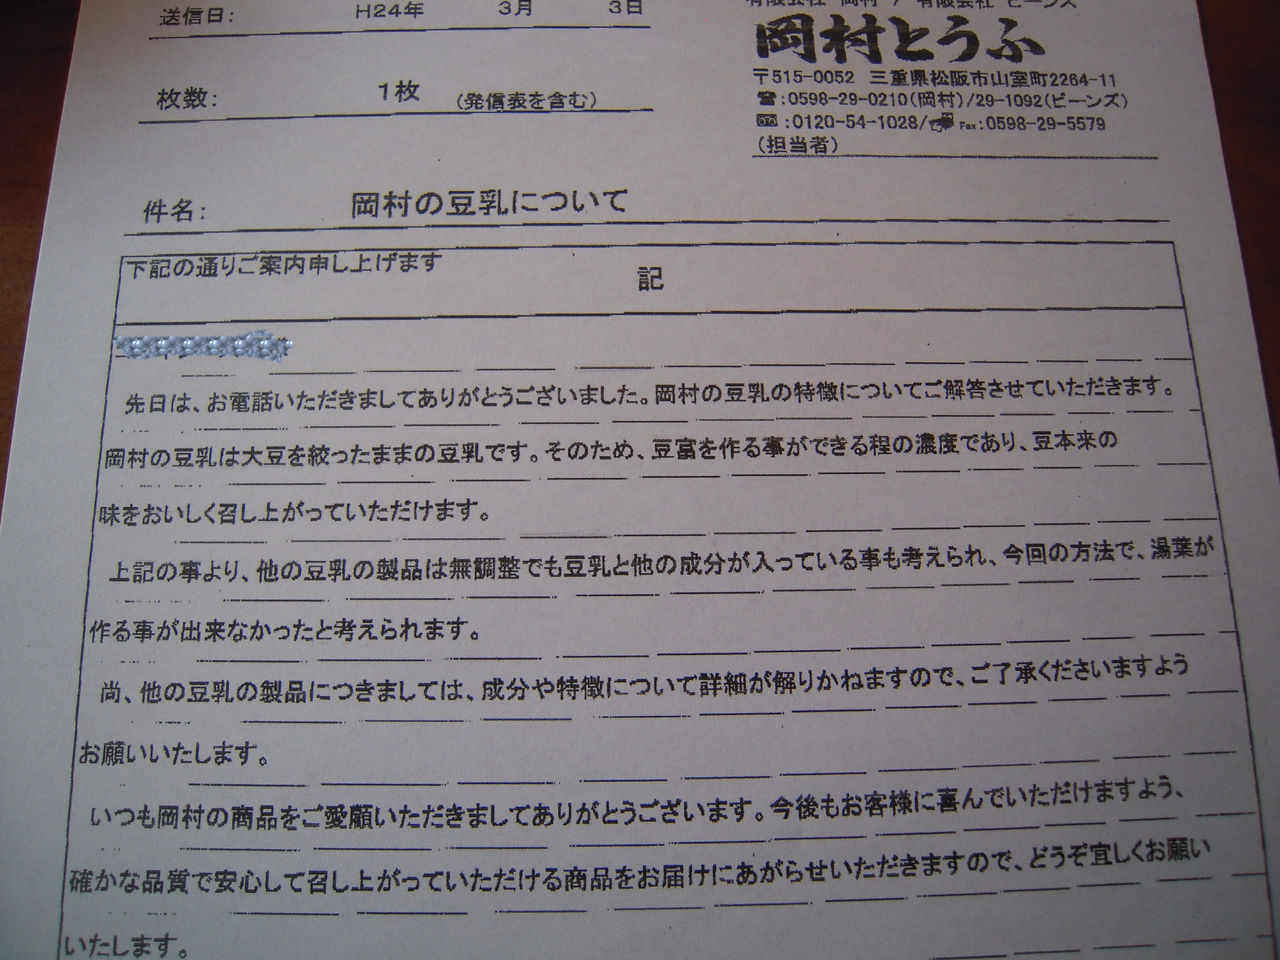 送信日: H24年 3月 3日
有限会社 岡村 / 有限会社 ビーンズ
岡村とうふ
〒515-0052 三重県松阪市山室町2264-11
☎:0598-29-0210(岡村)/29-1092(ビーンズ)
:0120-54-1028/ Fax:0598-29-5579
(担当者)
枚数: 1枚 (発信表を含む)
件名: 岡村の豆乳について
下記の通りご案内申し上げます
記
先日は、お電話いただきましてありがとうございました。岡村の豆乳の特徴についてご解答させていただきます。
岡村の豆乳は大豆を絞ったままの豆乳です。そのため、豆富を作る事ができる程の濃度であり、豆本来の
味をおいしく召し上がっていただけます。
上記の事より、他の豆乳の製品は無調整でも豆乳と他の成分が入っている事も考えられ、今回の方法で、湯葉が
作る事が出来なかったと考えられます。
尚、他の豆乳の製品につきましては、成分や特徴について詳細が解りかねますので、ご了承くださいますよう
お願いいたします。
いつも岡村の商品をご愛顧いただきましてありがとうございます。今後もお客様に喜んでいただけますよう、
確かな品質で安心して召し上がっていただける商品をお届けにあがらせいただきますので、どうぞ宜しくお願い
いたします。